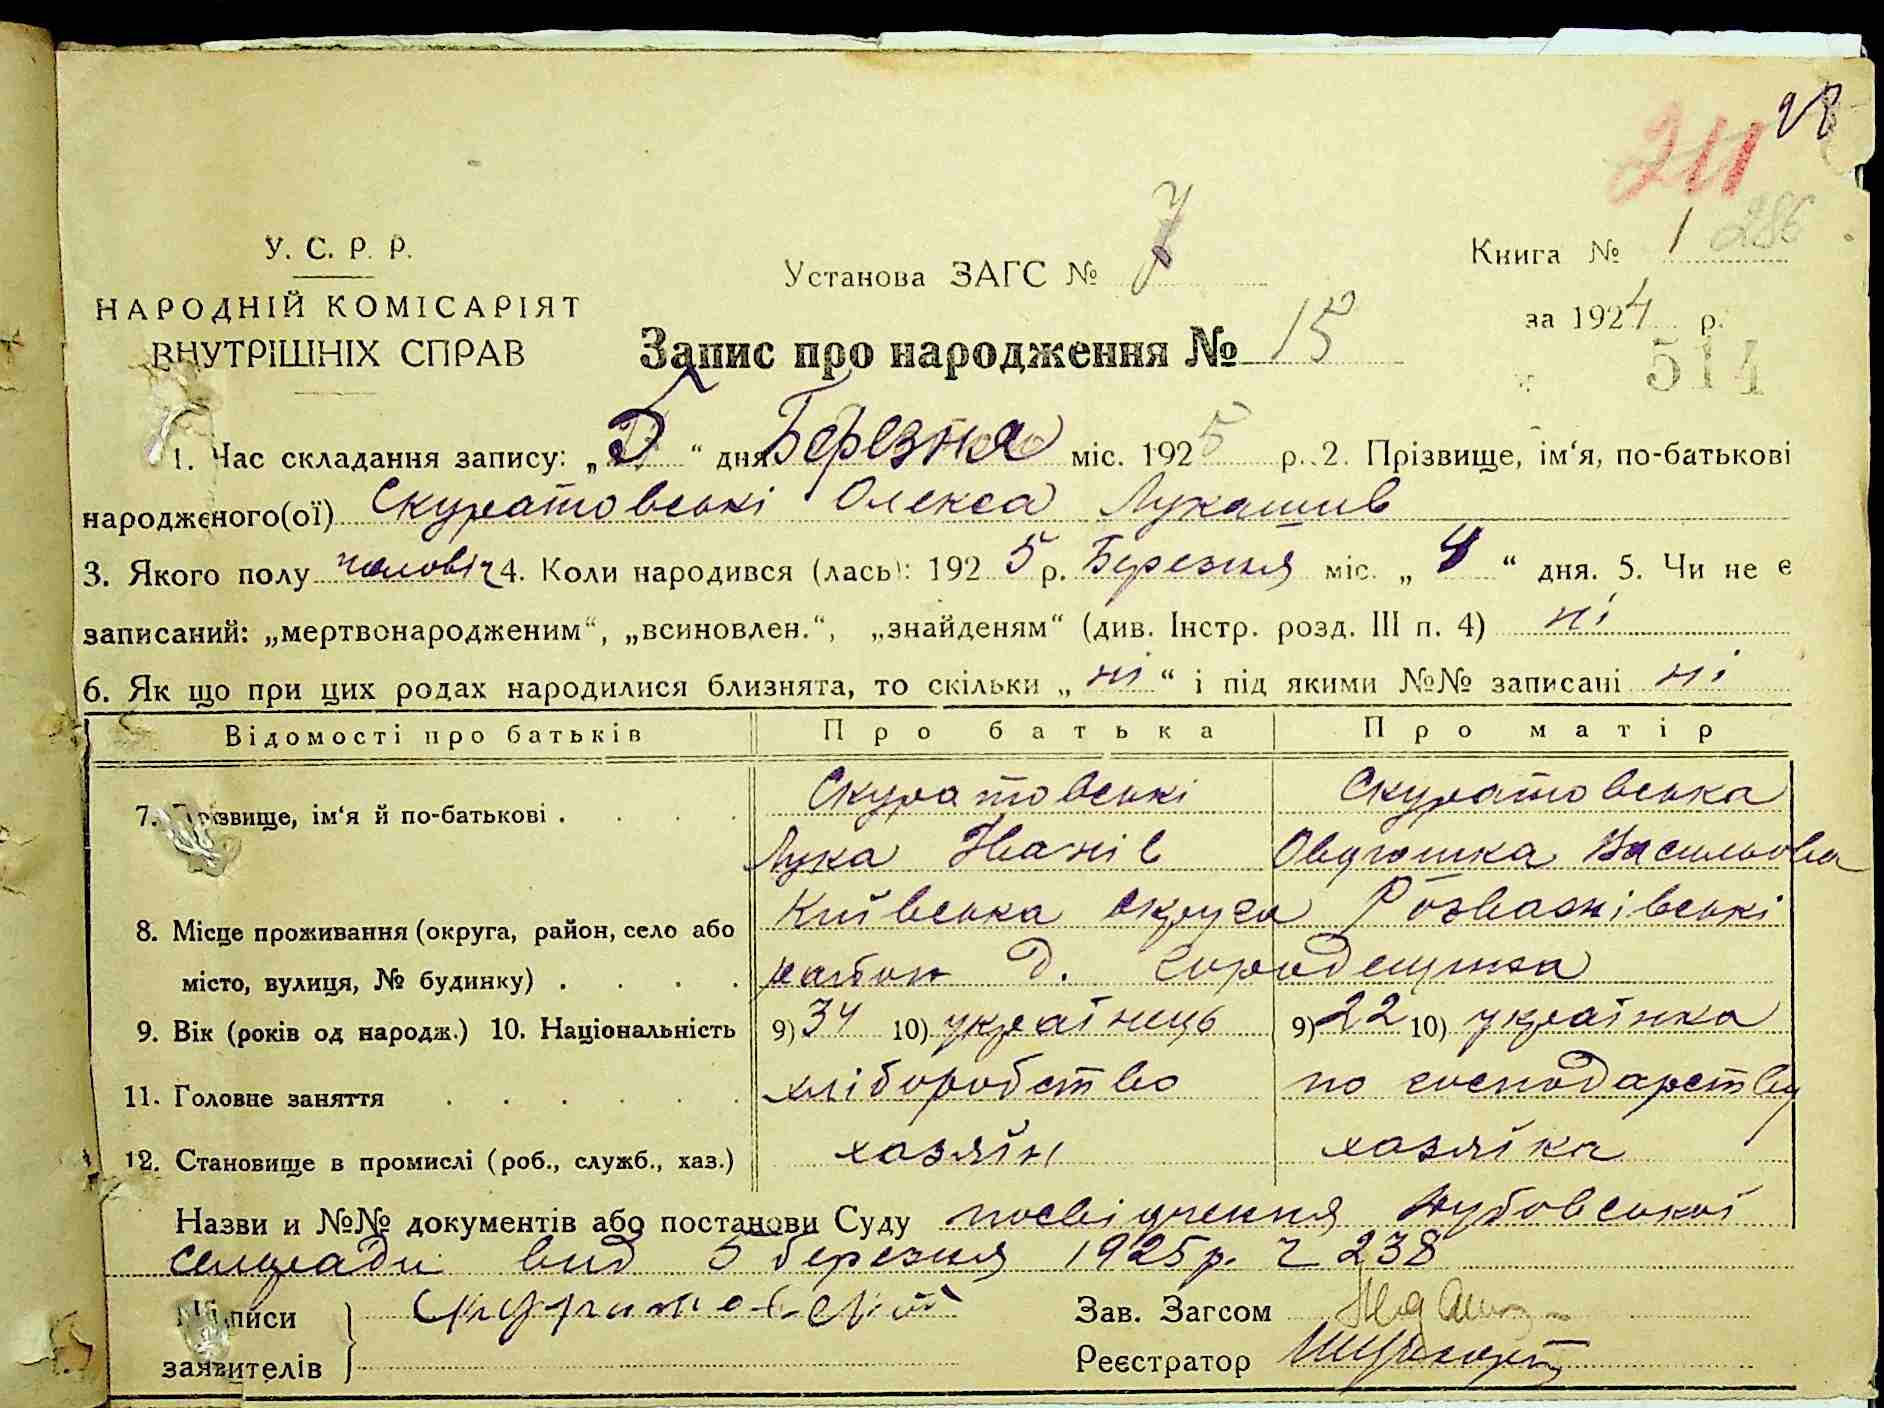 28
211
У. С. Р. Р.
Установа ЗАГС № 7
Книга № 1 286
НАРОДНІЙ КОМІСАРІЯТ
за 1924 р.
ВНУТРІШНІХ СПРАВ
Запис про народження № 15
514
1. Час складання запису: „5“ дня Березня міс. 1925 р. 2. Прізвище, ім‘я, по-батькові
народженого(ої) Скуратовські Олекса Лукашив
3. Якого полу чоловіч 4. Коли народився (лась): 1925 р. Березня міс. „4“ дня. 5. Чи не є
записаний: „мертвонародженим“, „всиновлен.“, „знайденям“ (див. Інстр. розд. III п. 4) ні
6. Як що при цих родах народилися близнята, то скільки „ні“ і під якими №№ записані ні
Відомості про батьків Про батька Про матір
7. Прізвище, ім‘я й по-батькові . . . . Скуратовські Скуратовська
Лука Іванів Овдюшка Васильова
8. Місце проживання (округа, район, село або Київська округа Розважівські
місто, вулиця, № будинку) . . . . район д. Городещина
9. Вік (років од народж.) 10. Національність 9) 34 10) українець 9) 22 10) українка
11. Головне заняття . . . . . . хліборобство по господарству
12. Становище в промислі (роб., служб., хаз.) хазяїн хазяїка
Назви и №№ документів або постанови Суду посвідчення
селради вид 5 березня 1925 р. Ч 238
Підписи
Зав. Загсом
заявителів
Реєстратор